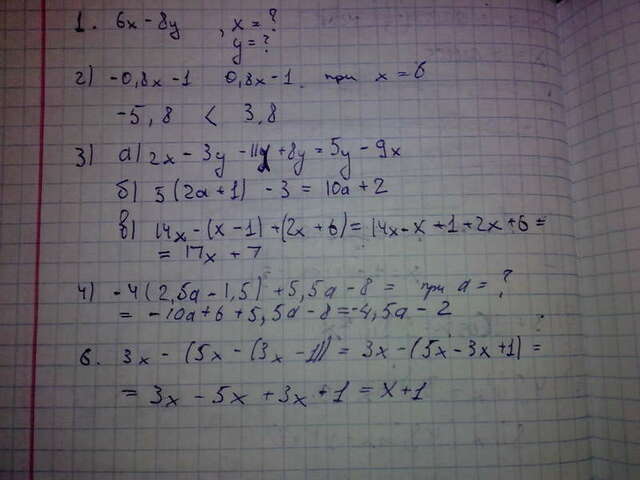 1. 6x - 8y , x = ?
y = ?
2) -0,8x - 1 0,8x - 1 при x = 6
-5,8 < 3,8
3) а) 2x - 3y - 11x + 8y = 5y - 9x
б) 5(2a + 1) - 3 = 10a + 2
в) 14x - (x - 1) + (2x + 6) = 14x - x + 1 + 2x + 6 =
= 17x + 7
4) -4(2,5a - 1,5) + 5,5a - 8 = при a = ?
= -10a + 6 + 5,5a - 8 = -4,5a - 2
6. 3x - (5x - (3x - 1)) = 3x - (5x - 3x + 1) =
= 3x - 5x + 3x + 1 = x + 1